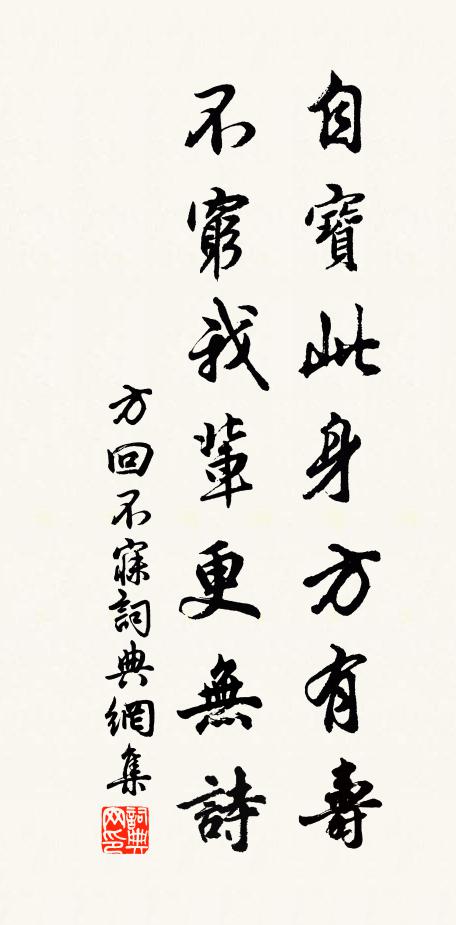 自寶此身方有壽
不窮我輩更無詩
方回不寐詞典網集
詞典网印